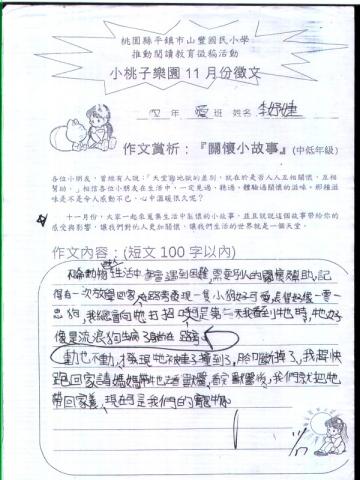 桃園縣平鎮市山豐國民小學
推動閱讀教育徵稿活動
小桃子樂園 11 月份徵文
年 愛 班 姓名 李
作文賞析：『關懷小故事』(中低年級)
各位小朋友，曾經有人說：「天堂跟地獄的差別，就在於是否人人互相關懷、互相
幫助。」相信各位小朋友在生活中，一定見過、聽過、體驗過關懷的滋味。那種滋
味是不是令人感動不已、心中溫暖很久呢？
十一月份，大家一起來蒐集生活中关懷的小故事，並且說說這個故事帶給你的
感受與影響，讓我們對的人更加關懷，讓我們生活的世界就是一個天堂。
作文內容：(短文 100 字以內)
動物 生活中 會遇到困難 需要別人的關懷幫助，記
得有一次放學回家 在路旁發現一隻小狗好可愛 長得好像
品狗，我總會向牠打招呼 是第二天我看到牠時，牠好
像是流浪狗生病了身躺在路旁
動也不動，發現牠不 撞到了，腳斷掉了，我趕快
跑回家請媽媽帶牠去看獸醫，看完獸醫後，我們就把牠
帶回家養，現在可是我們的寵物。